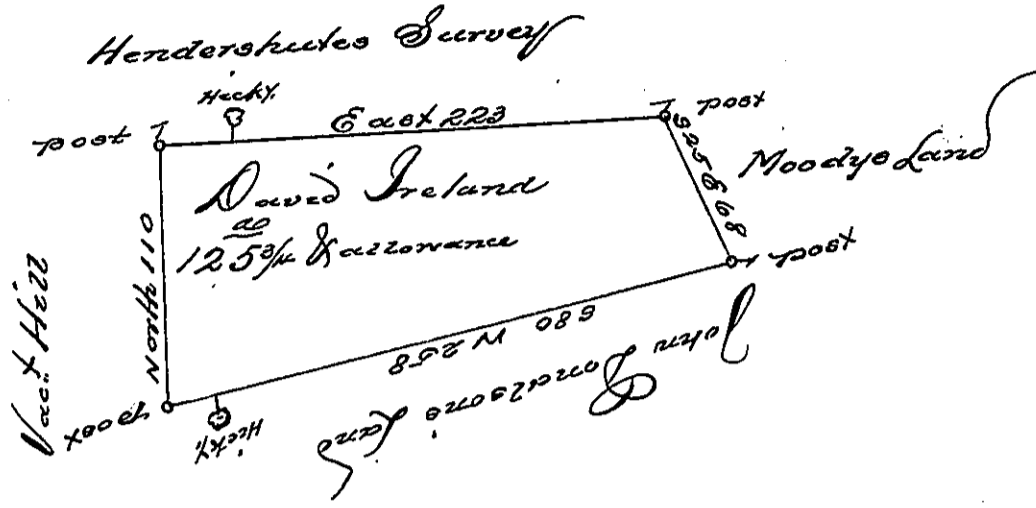 Hendershutes Survey
Hicky.
post
East 223
post
S25E68
Moodys Land
David Ireland
as
125 3/4 & allowance
North 110
Vact Hill
post
S80 W258
post
Hicky.
John Donalsons Land